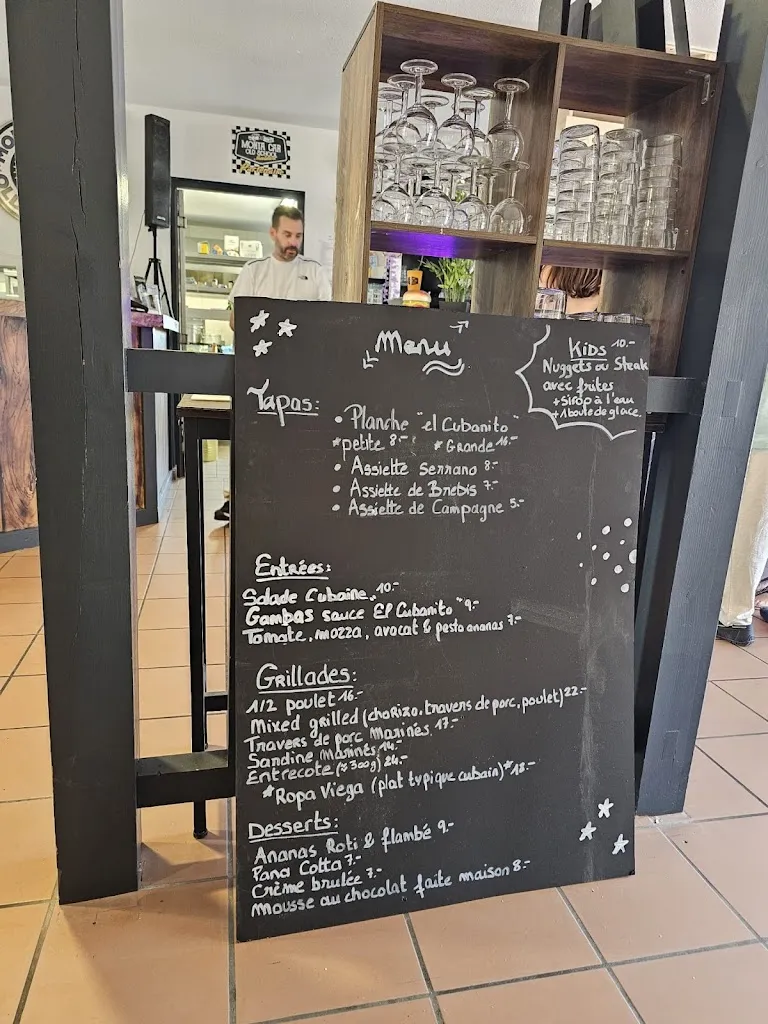 MONTA CAB
OLD SCHOOL
Menu
Kids 10.-
Nuggets ou Steak
avec frites
+ Sirop à l'eau
+ 1 boule de glace.
Tapas:
• Planche "el Cubanito"
*petite 8.- *Grande 16.-
• Assiette serrano 8.-
• Assiette de Brebis 7.-
• Assiette de Campagne 5.-
Entrées:
Salade Cubaine 10.-
Gambas sauce "El Cubanito" 9.-
Tomate, mozza, avocat & pesto ananas 7.-
Grillades:
1/2 poulet 16.-
Mixed grilled (chorizo, travers de porc, poulet) 22.-
Travers de porc Marinés 17.-
Sardine Marinés 14.-
Entrecote (≈300g) 24.-
*Ropa Viega (plat typique cubain)* 18.-
Desserts:
Ananas Roti & flambé 9.-
Pana Cotta 7.-
Crème brulée 7.-
Mousse au chocolat faite maison 8.-